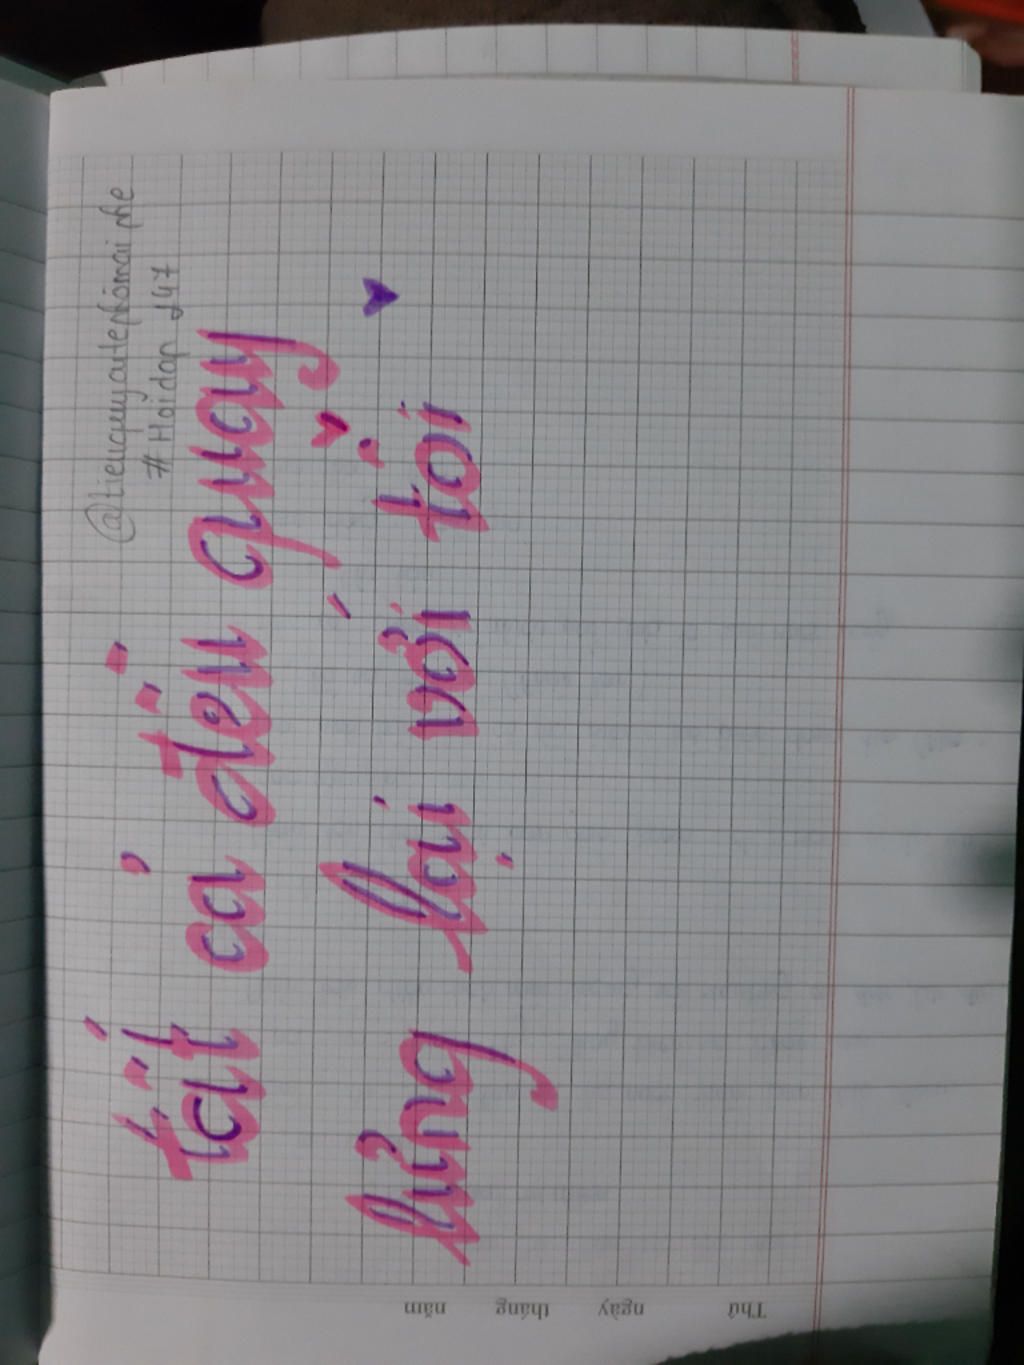 @tieuquyoutephomaiphe
#Hoidap 247
tất cả đều quay
lưng lại với tôi
Thứ ngày tháng năm